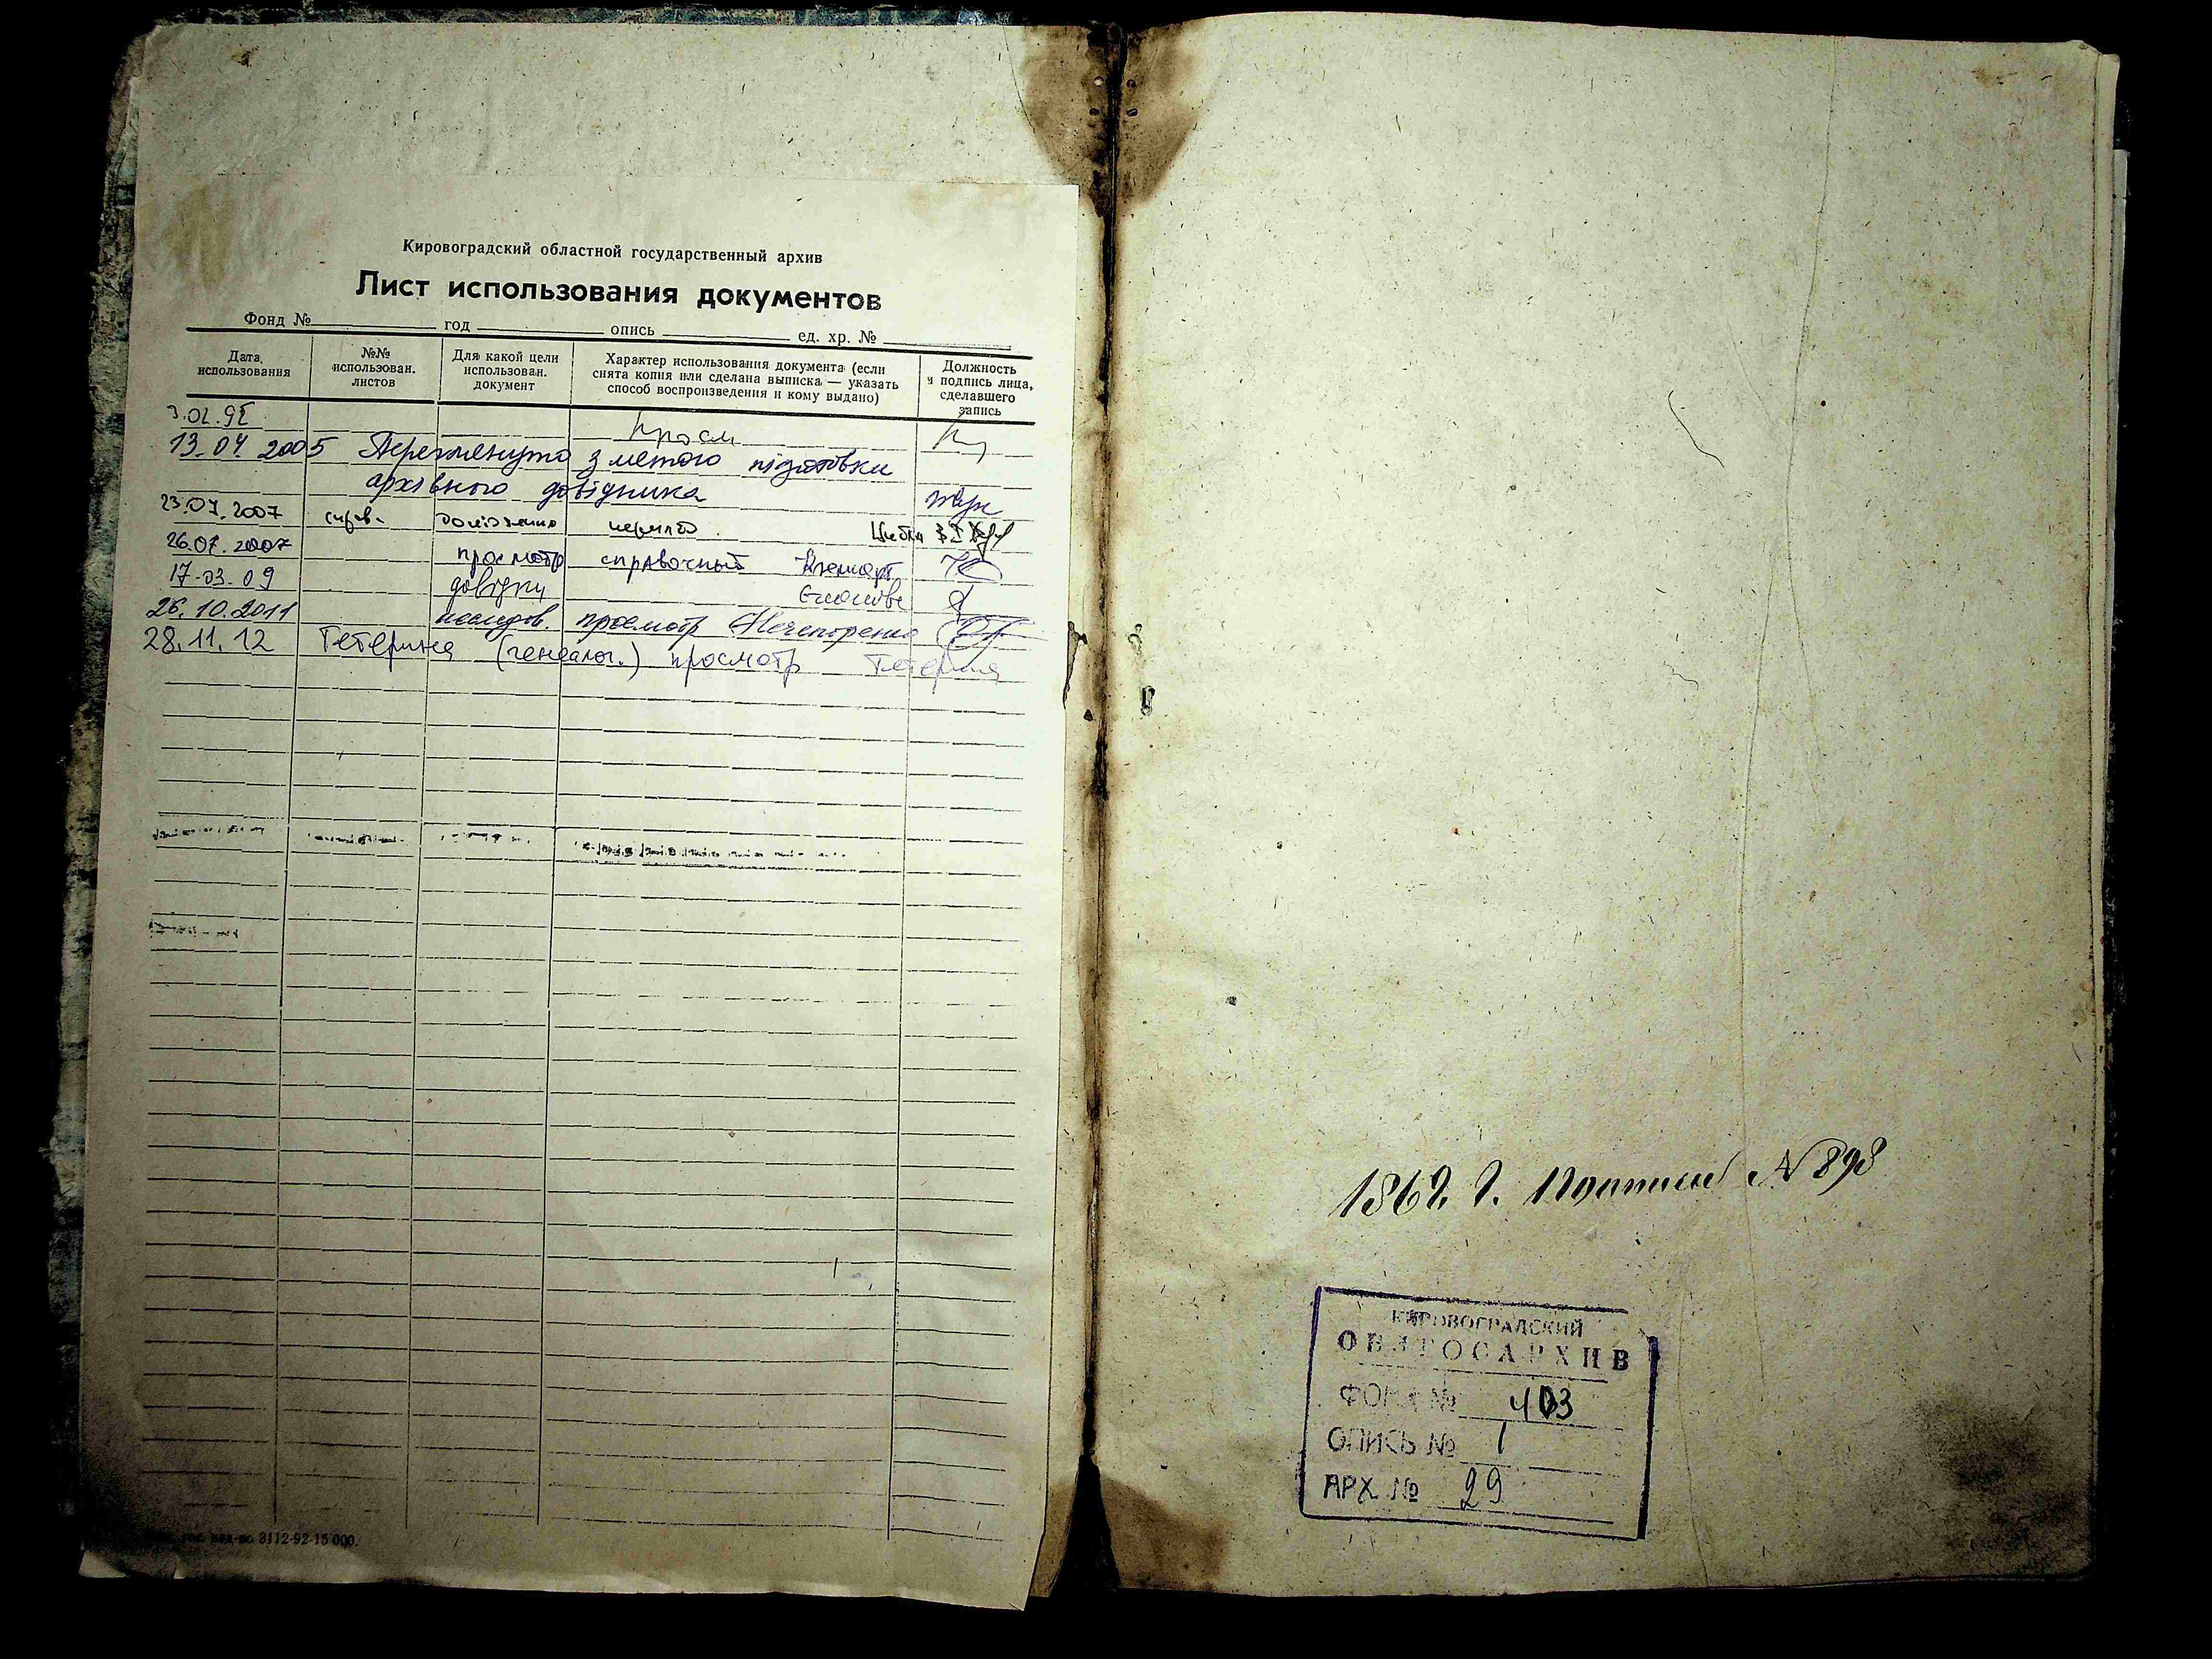 Кировоградский областной государственный архив
Лист использования документов
Фонд № год опись ед. хр. №
Дата использования
№№ использован. листов
Для какой цели использован. документ
Характер использования документа (если снята копия или сделана выписка — указать способ воспроизведения и кому выдано)
Должность и подпись лица, сделавшего запись
просм
13.04.2005 Переглянуто з метою підготовки
архівного довідника
23.07.2007
26.07.2007 просмотр справочный
17.03.09 довідки
26.10.2011 исследов. просмотр Нечипоренко
28.11.12 Тетерина (генеалог.) просмотр Тетерина
3112-92-15 000.
1862 г. По описи № 898
КИРОВОГРАДСКИЙ
ОБЛГОСАРХИВ
ФОНД № 403
ОПИСЬ № 1
АРХ № 29